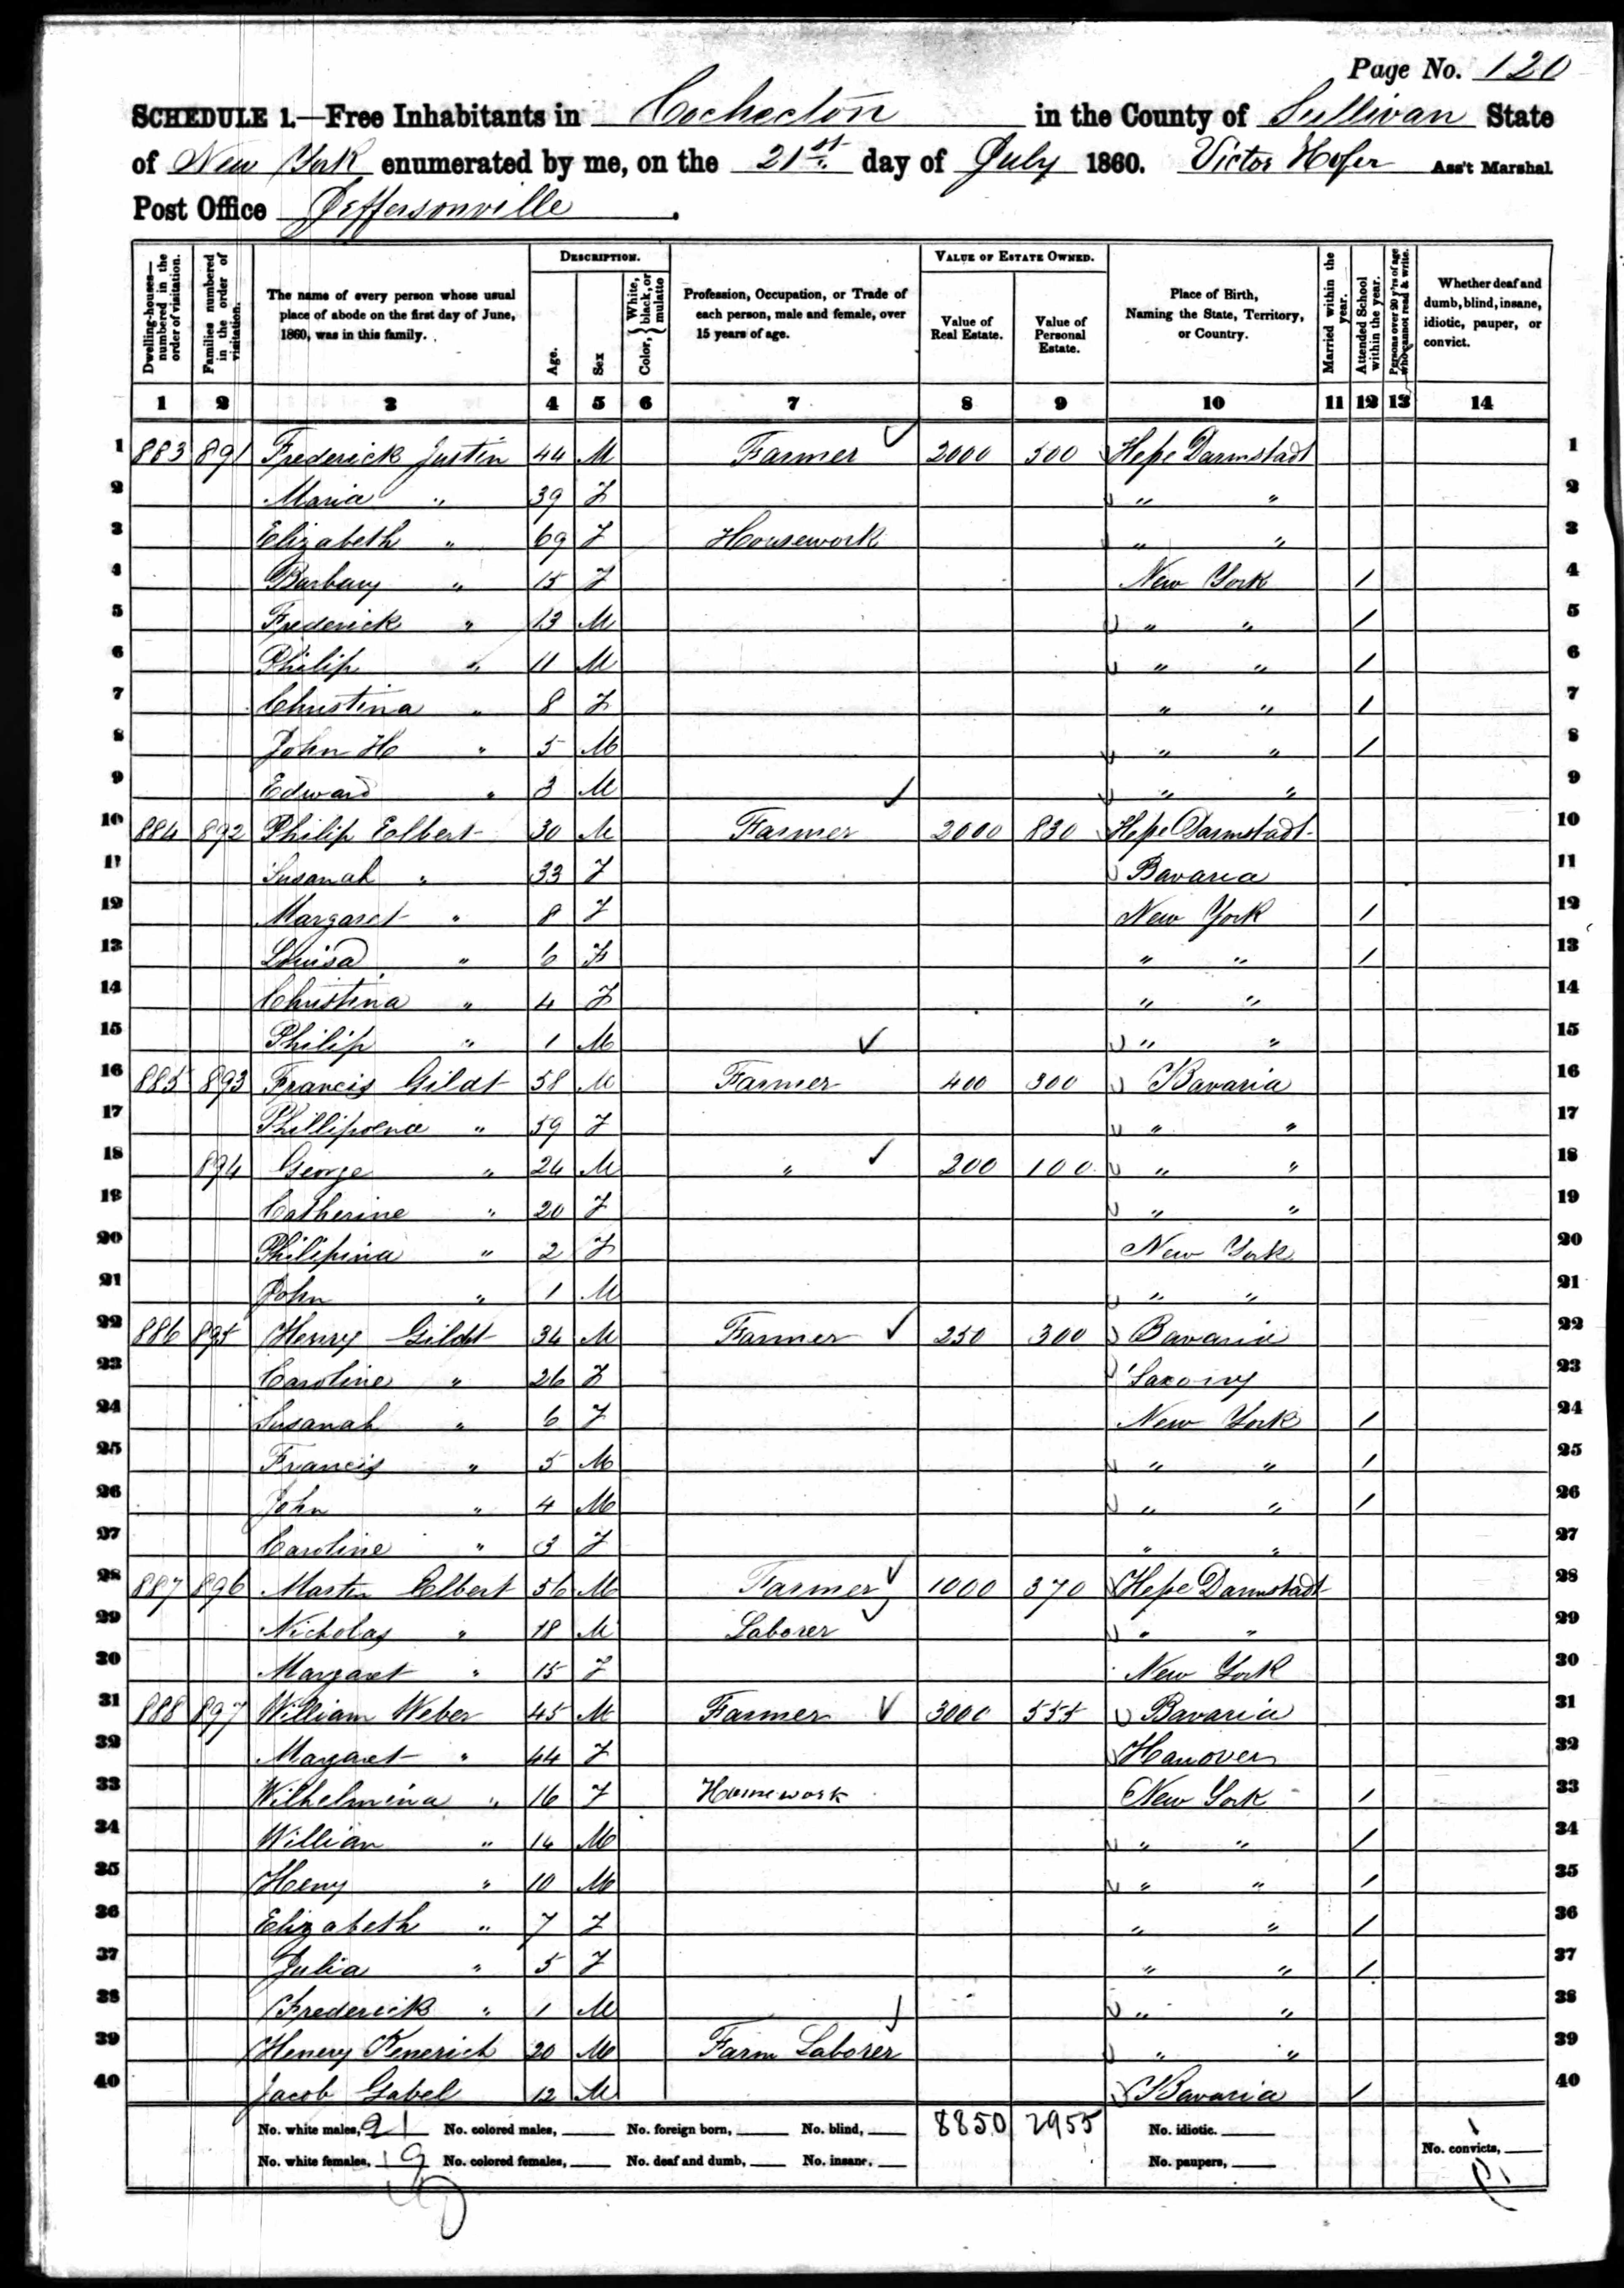 Page No. 120
SCHEDULE 1.—Free Inhabitants in Cochecton in the County of Sullivan State
of New York enumerated by me, on the 21st. day of July 1860. Victor Hofer Ass't Marshal.
Post Office Jeffersonville.
Dwelling-houses—numbered in the order of visitation. Families numbered in the order of visitation. The name of every person whose usual place of abode on the first day of June, 1860, was in this family. DESCRIPTION. Age. Sex Color, White, black, or mulatto Profession, Occupation, or Trade of each person, male and female, over 15 years of age. VALUE OF ESTATE OWNED. Value of Real Estate. Value of Personal Estate. Place of Birth, Naming the State, Territory, or Country. Married within the year. Attended School within the year. Persons over 20 y'rs of age who cannot read & write. Whether deaf and dumb, blind, insane, idiotic, pauper, or convict.
1 2 3 4 5 6 7 8 9 10 11 12 13 14
1 883 891 Frederick Justin 44 M Farmer 2000 500 Hesse Darmstadt 1
2 Maria " 39 F " " 2
3 Elizabeth " 69 F Housework " " 3
4 Barbary " 15 F New York / 4
5 Frederick " 13 M " " / 5
6 Philip " 11 M " " / 6
7 Christina " 8 F " " / 7
8 John H " 5 M " " / 8
9 Edward " 3 M " " 9
10 884 892 Philip Elbert 30 M Farmer 2000 830 Hesse Darmstadt 10
11 Susanah " 33 F Bavaria 11
12 Margaret " 8 F New York / 12
13 Louisa " 6 F " " / 13
14 Christina " 4 F " " 14
15 Philip " 1 M " " 15
16 885 893 Francis Gildt 58 M Farmer 400 300 Bavaria 16
17 Phillipoena " 59 F " " 17
18 894 George " 24 M " 200 100 " " 18
19 Catherine " 20 F " " 19
20 Philipina " 2 F New York 20
21 John " 1 M " " 21
22 886 895 Henry Gildt 34 M Farmer 250 300 Bavaria 22
23 Caroline " 26 F Saxony 23
24 Susanah " 6 F New York / 24
25 Francis " 5 M " " / 25
26 John " 4 M " " / 26
27 Caroline " 3 F " " 27
28 887 896 Martin Elbert 56 M Farmer 1000 370 Hesse Darmstadt 28
29 Nicholas " 18 M Laborer " " 29
30 Margaret " 15 F New York 30
31 888 897 William Weber 45 M Farmer 3000 555 Bavaria 31
32 Margaret " 44 F Hanover 32
33 Wilhelmina " 16 F Housework New York / 33
34 Willian " 14 M " " / 34
35 Heny " 10 M " " / 35
36 Elizabeth " 7 F " " / 36
37 Julia " 5 F " " / 37
38 Frederick " 1 M " " 38
39 Henery Kenerich 20 M Farm Laborer " " 39
40 Jacob Gabel 12 M Bavaria / 40
No. white males, 21 No. colored males, No. foreign born, No. blind, 8850 2955 No. idiotic.
No. white females, 19 No. colored females, No. deaf and dumb, No. insane, No. paupers, No. convicts,